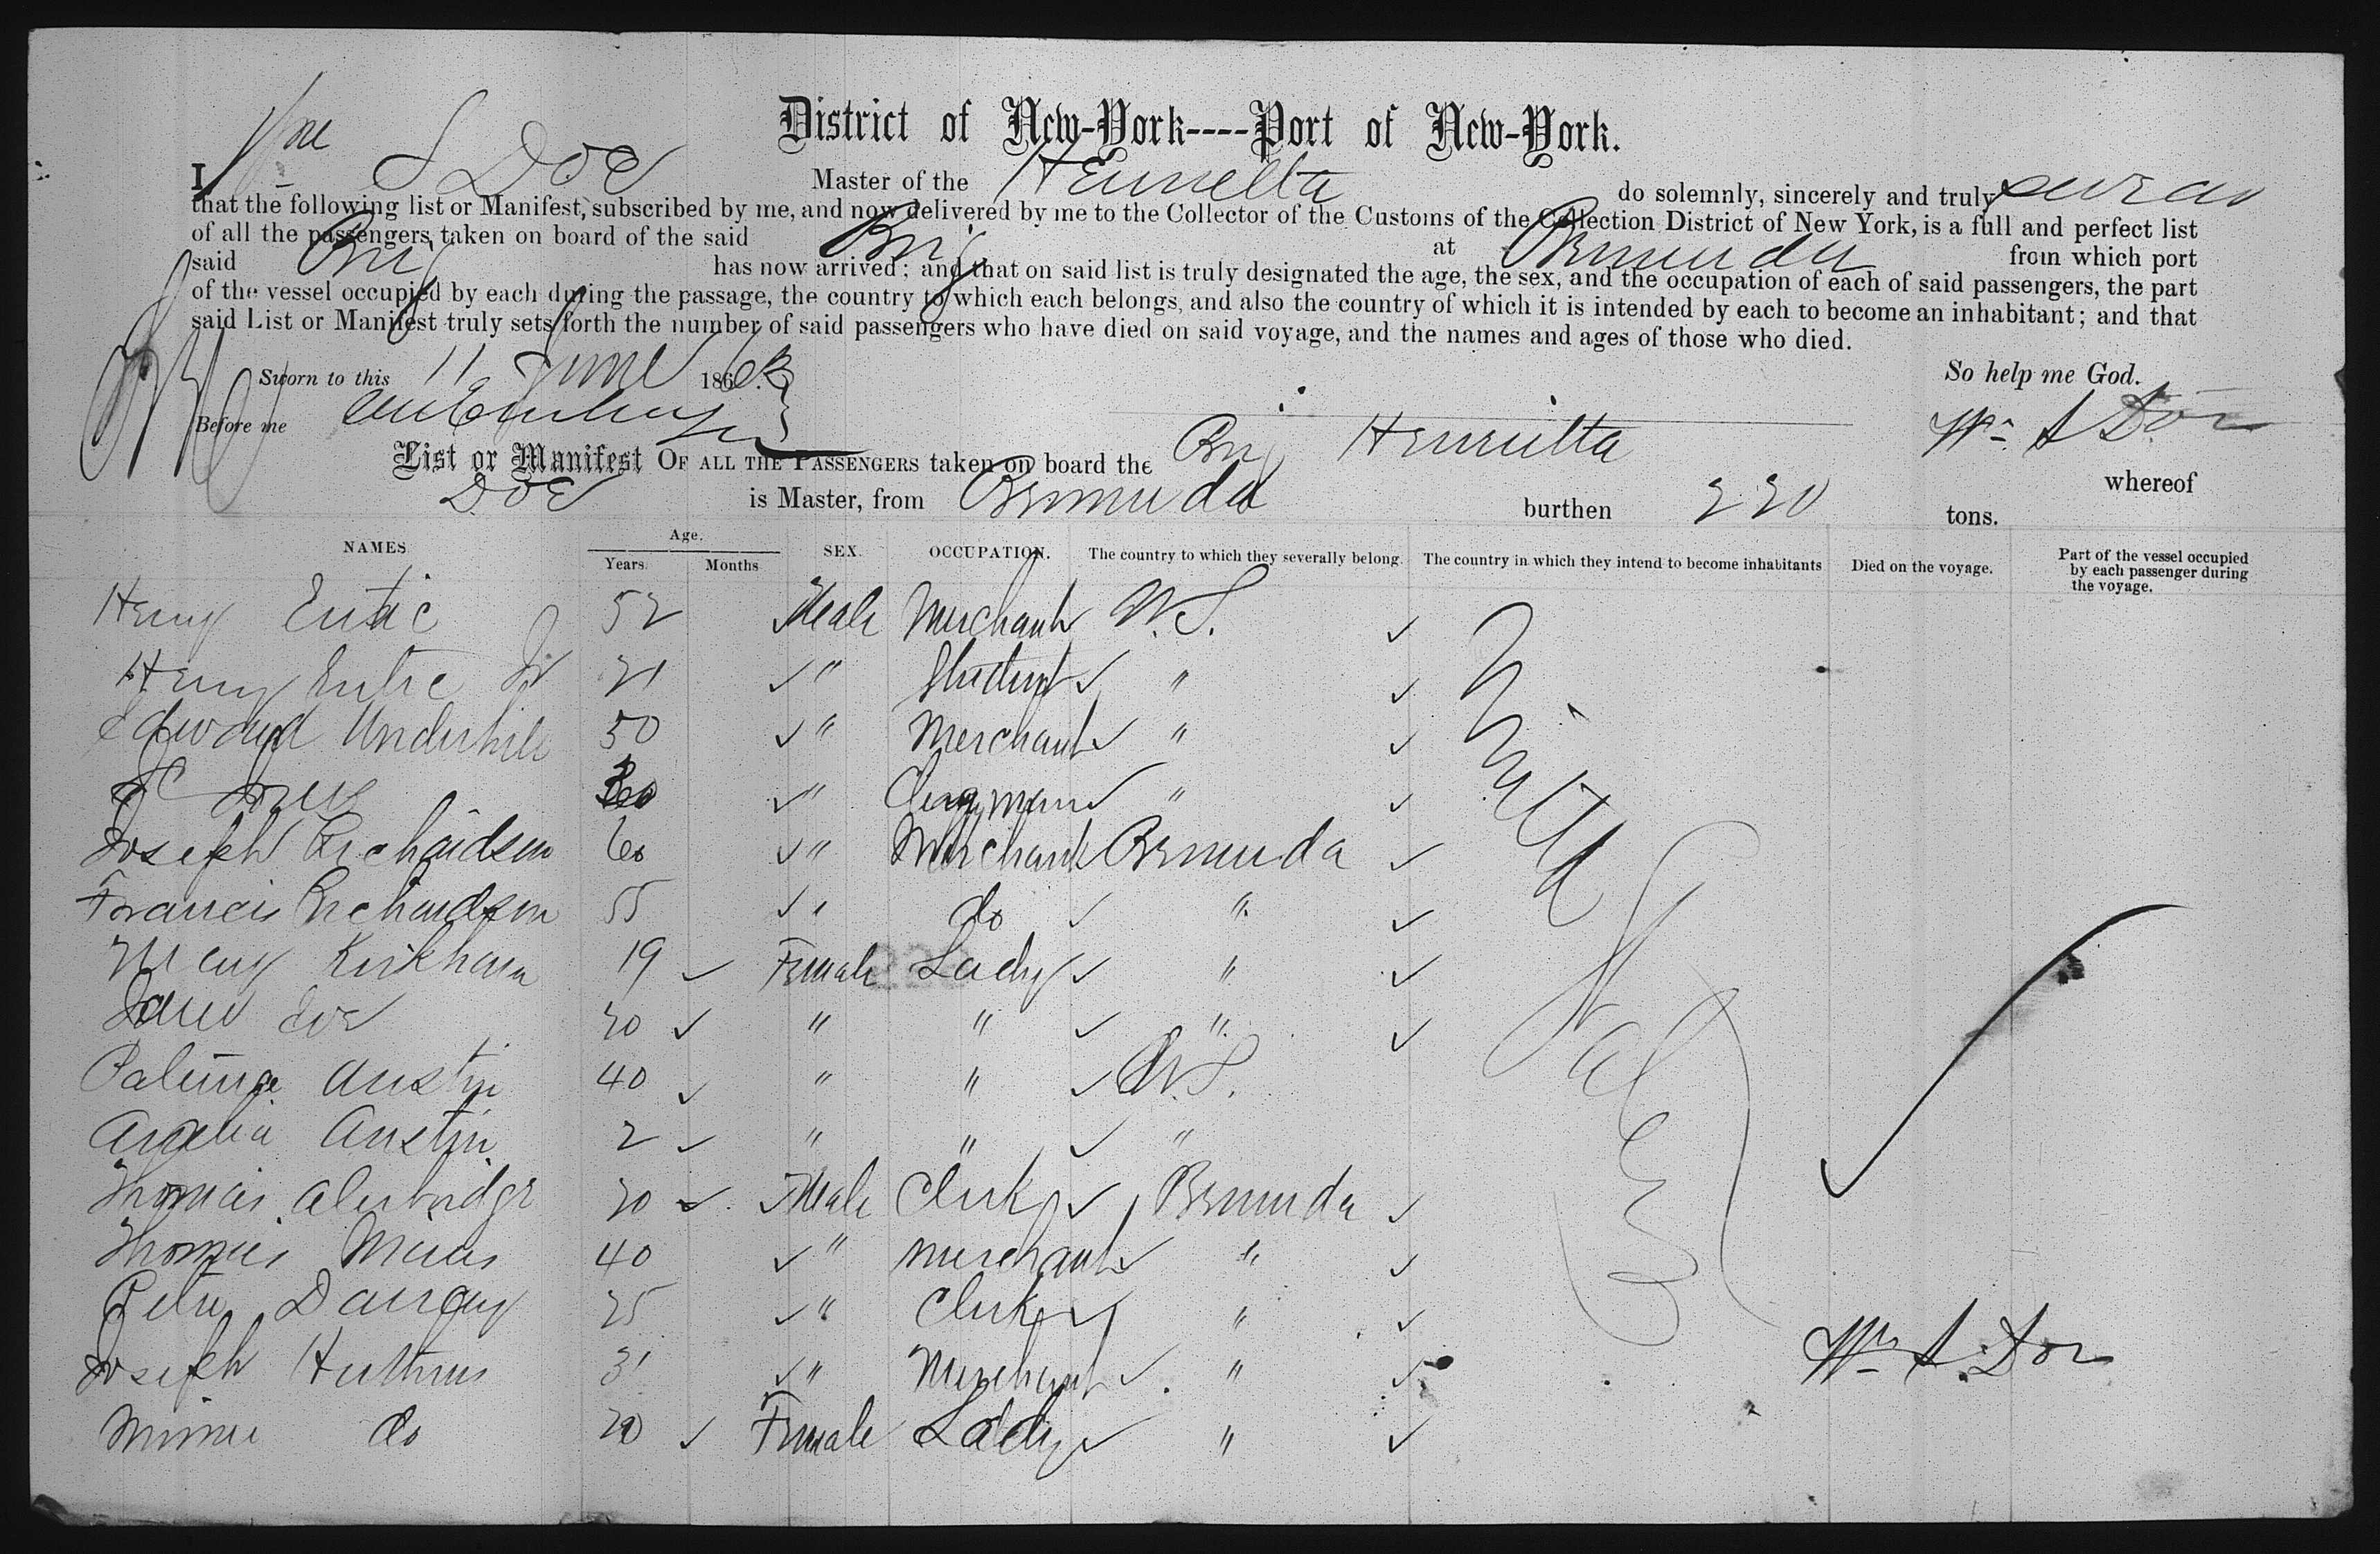 District of New-York----Port of New-York.
I, Wm S Doe Master of the Henrietta do solemnly, sincerely and truly swear
that the following list or Manifest, subscribed by me, and now delivered by me to the Collector of the Customs of the Collection District of New York, is a full and perfect list
of all the passengers taken on board of the said Brig at Bermuda from which port
said Brig has now arrived; and that on said list is truly designated the age, the sex, and the occupation of each of said passengers, the part
of the vessel occupied by each during the passage, the country to which each belongs, and also the country of which it is intended by each to become an inhabitant; and that
said List or Manifest truly sets forth the number of said passengers who have died on said voyage, and the names and ages of those who died.
Sworn to this 11 June 186 So help me God.
Before me Wm S Doe
List or Manifest OF ALL THE PASSENGERS taken on board the Brig Henrietta whereof
Doe is Master, from Bermuda burthen 220 tons.
NAMES Age. Years. Months SEX. OCCUPATION. The country to which they severally belong. The country in which they intend to become inhabitants Died on the voyage. Part of the vessel occupied by each passenger during the voyage.
Henry 52 Male Merchant U.S.
Henry Jr 21 " Student "
Edward Underhill 50 " Merchant "
" Clergyman "
Joseph Richardson 60 " Merchant Bermuda
Francis Richardson 55 " do "
Mary Kirkham 19 Female Lady "
20 " " "
Austin 40 " " U.S.
Austin 2 " " "
Thomas 20 Male Clerk Bermuda
Thomas 40 " merchant "
Peter 25 " Clerk "
Joseph 31 " Merchant "
Minnie do 20 Female Lady "
United States
Wm S Doe